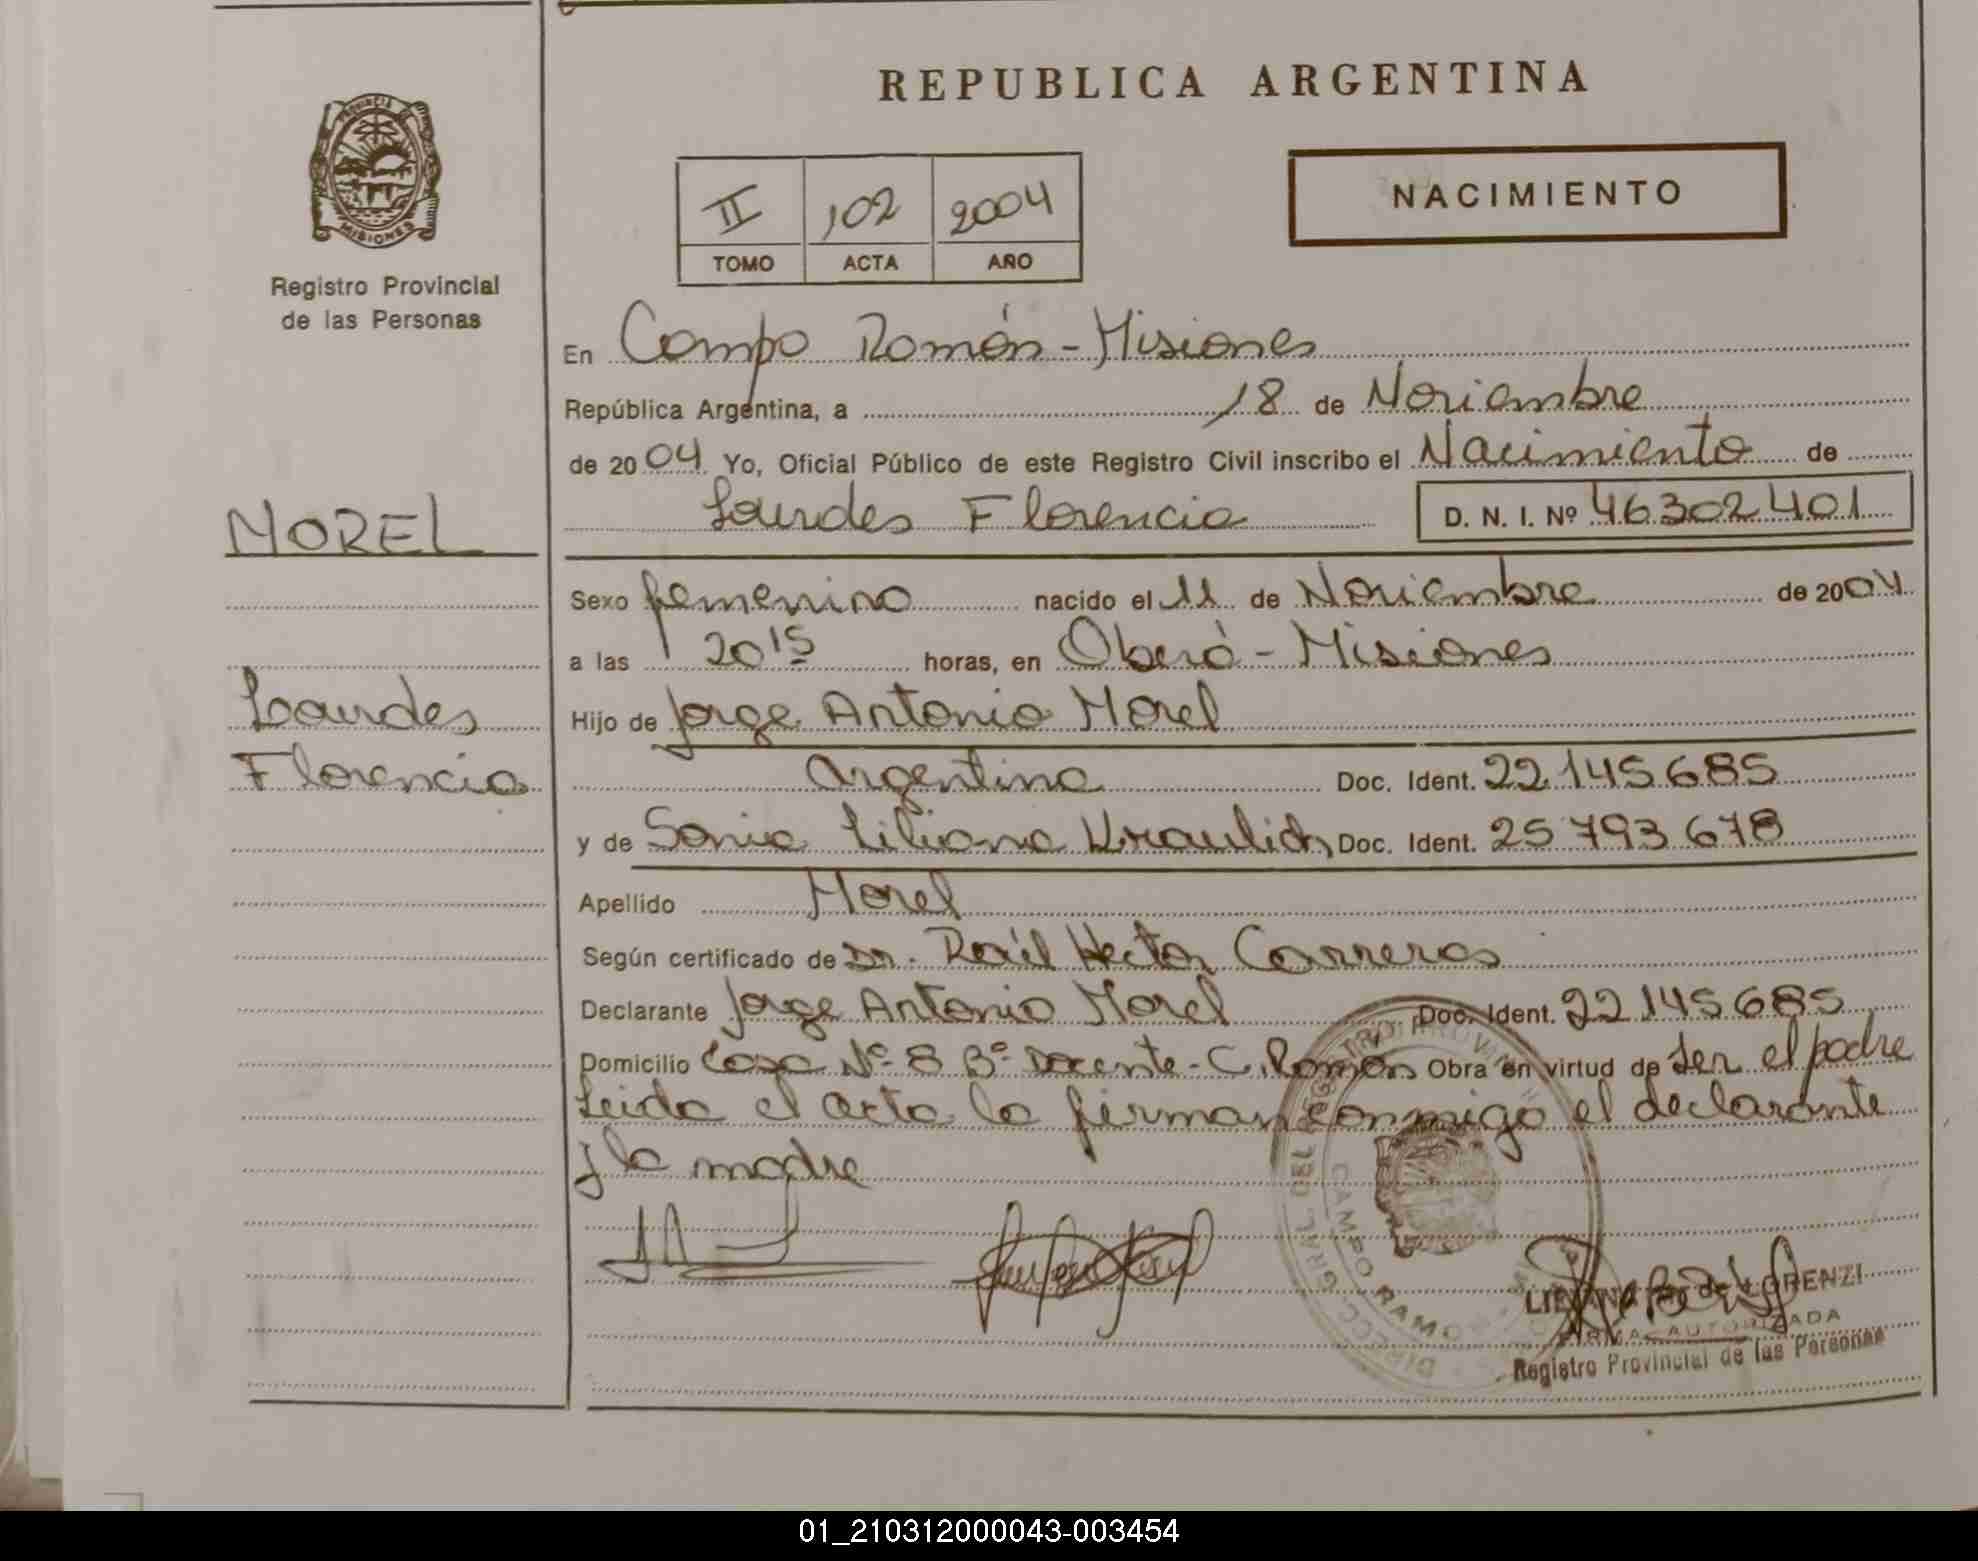 REPUBLICA ARGENTINA
PROVINCIA
MISIONES
Registro Provincial
de las Personas
MOREL
Lourdes
Florencia
II 102 2004
TOMO ACTA AÑO
NACIMIENTO
En Campo Ramón - Misiones
República Argentina, a 18 de Noviembre
de 2004 Yo, Oficial Público de este Registro Civil inscribo el Nacimiento de
Lourdes Florencia D. N. I. Nº 46302401
Sexo femenino nacido el 11 de Noviembre de 2004
a las 20 15 horas, en Oberá - Misiones
Hijo de Jorge Antonio Morel
Argentina Doc. Ident. 22.145.685
y de Sonia Liliana Kraulich Doc. Ident. 25 793 678
Apellido Morel
Según certificado de Dr. Raúl Hector Carreras
Declarante Jorge Antonio Morel Doc. Ident. 22.145.685
Domicilio Casa Nº 8 Bº Docente - C. Ramón Obra en virtud de ser el padre
Leida el acta la firman conmigo el declarante
y la madre
DIRECC. GRAL. DEL REGISTRO PROVIN
CAMPO RAMON
de LORENZI
FIRMA AUTORIZADA
Registro Provincial de las Personas
01_210312000043-003454